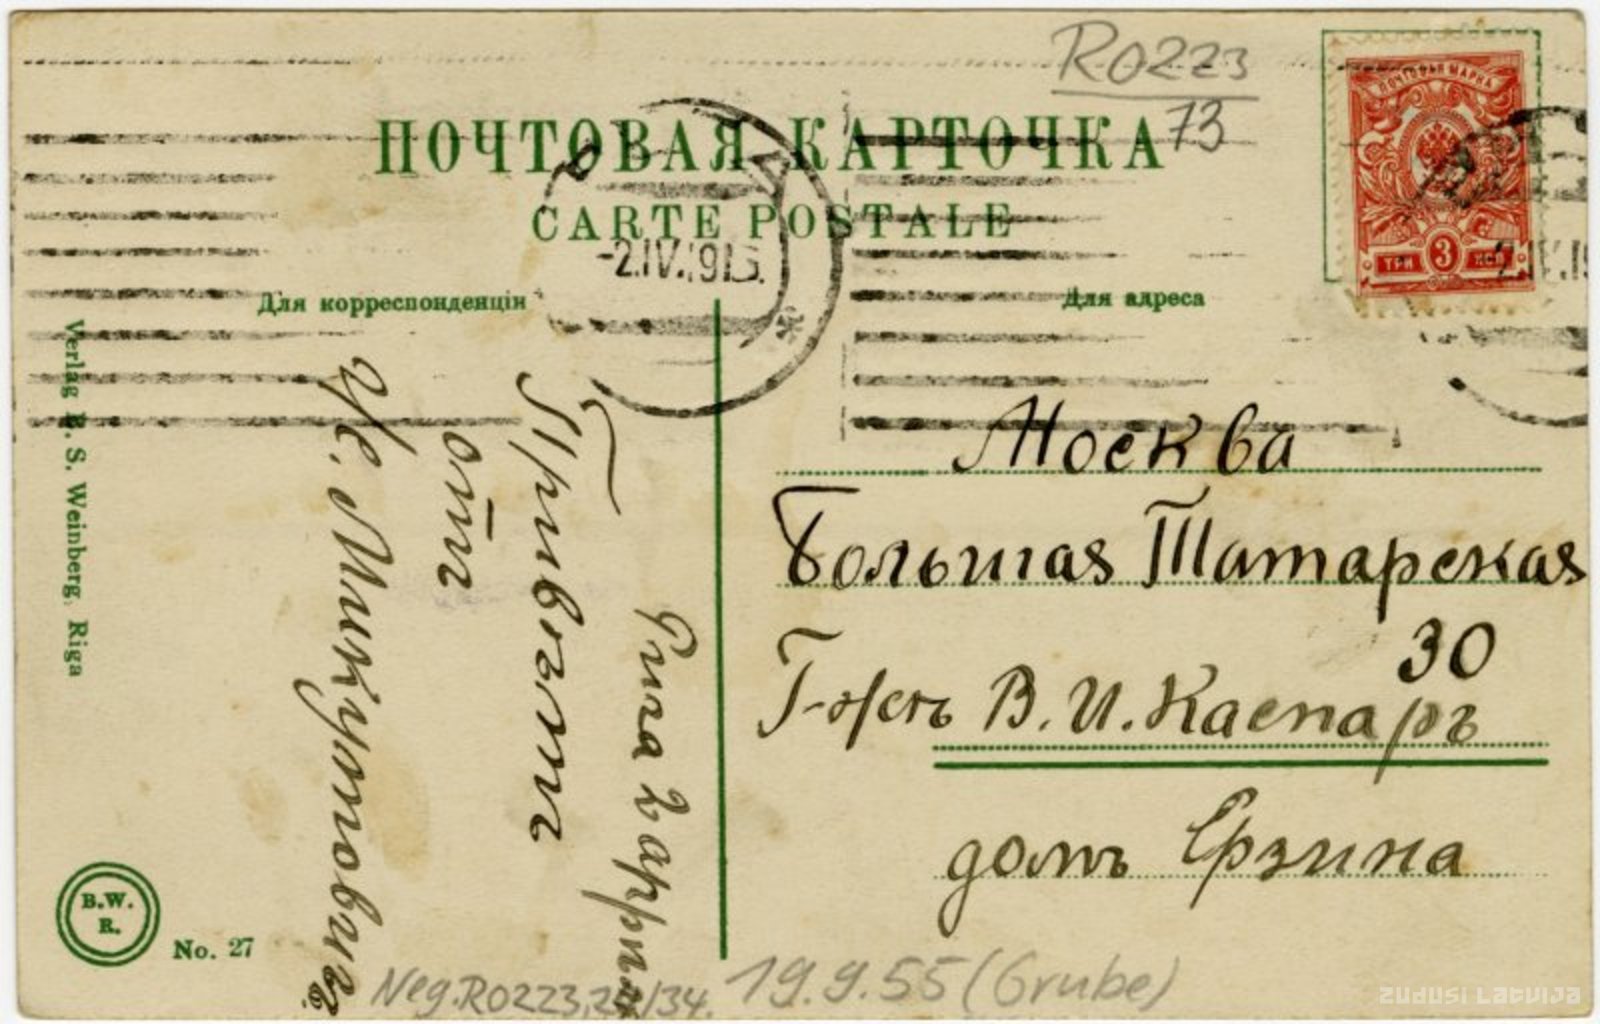 R0223
73
ПОЧТОВАЯ КАРТОЧКА
CARTE POSTALE
ПОЧТОВАЯ МАРКА
ТРИ 3 КОП
-2.IV.
Для корреспонденціи
Для адреса
Рига 2 апрѣля
Привѣтъ
отъ
Микутовичъ
Москва
Большая Татарская
30
Г-жѣ В. И. Каспаръ
домъ Ерзина
Verlag B. S. Weinberg, Riga
B.W.
R.
No. 27
19.9.55 (Grube)
Zudusi Latvija